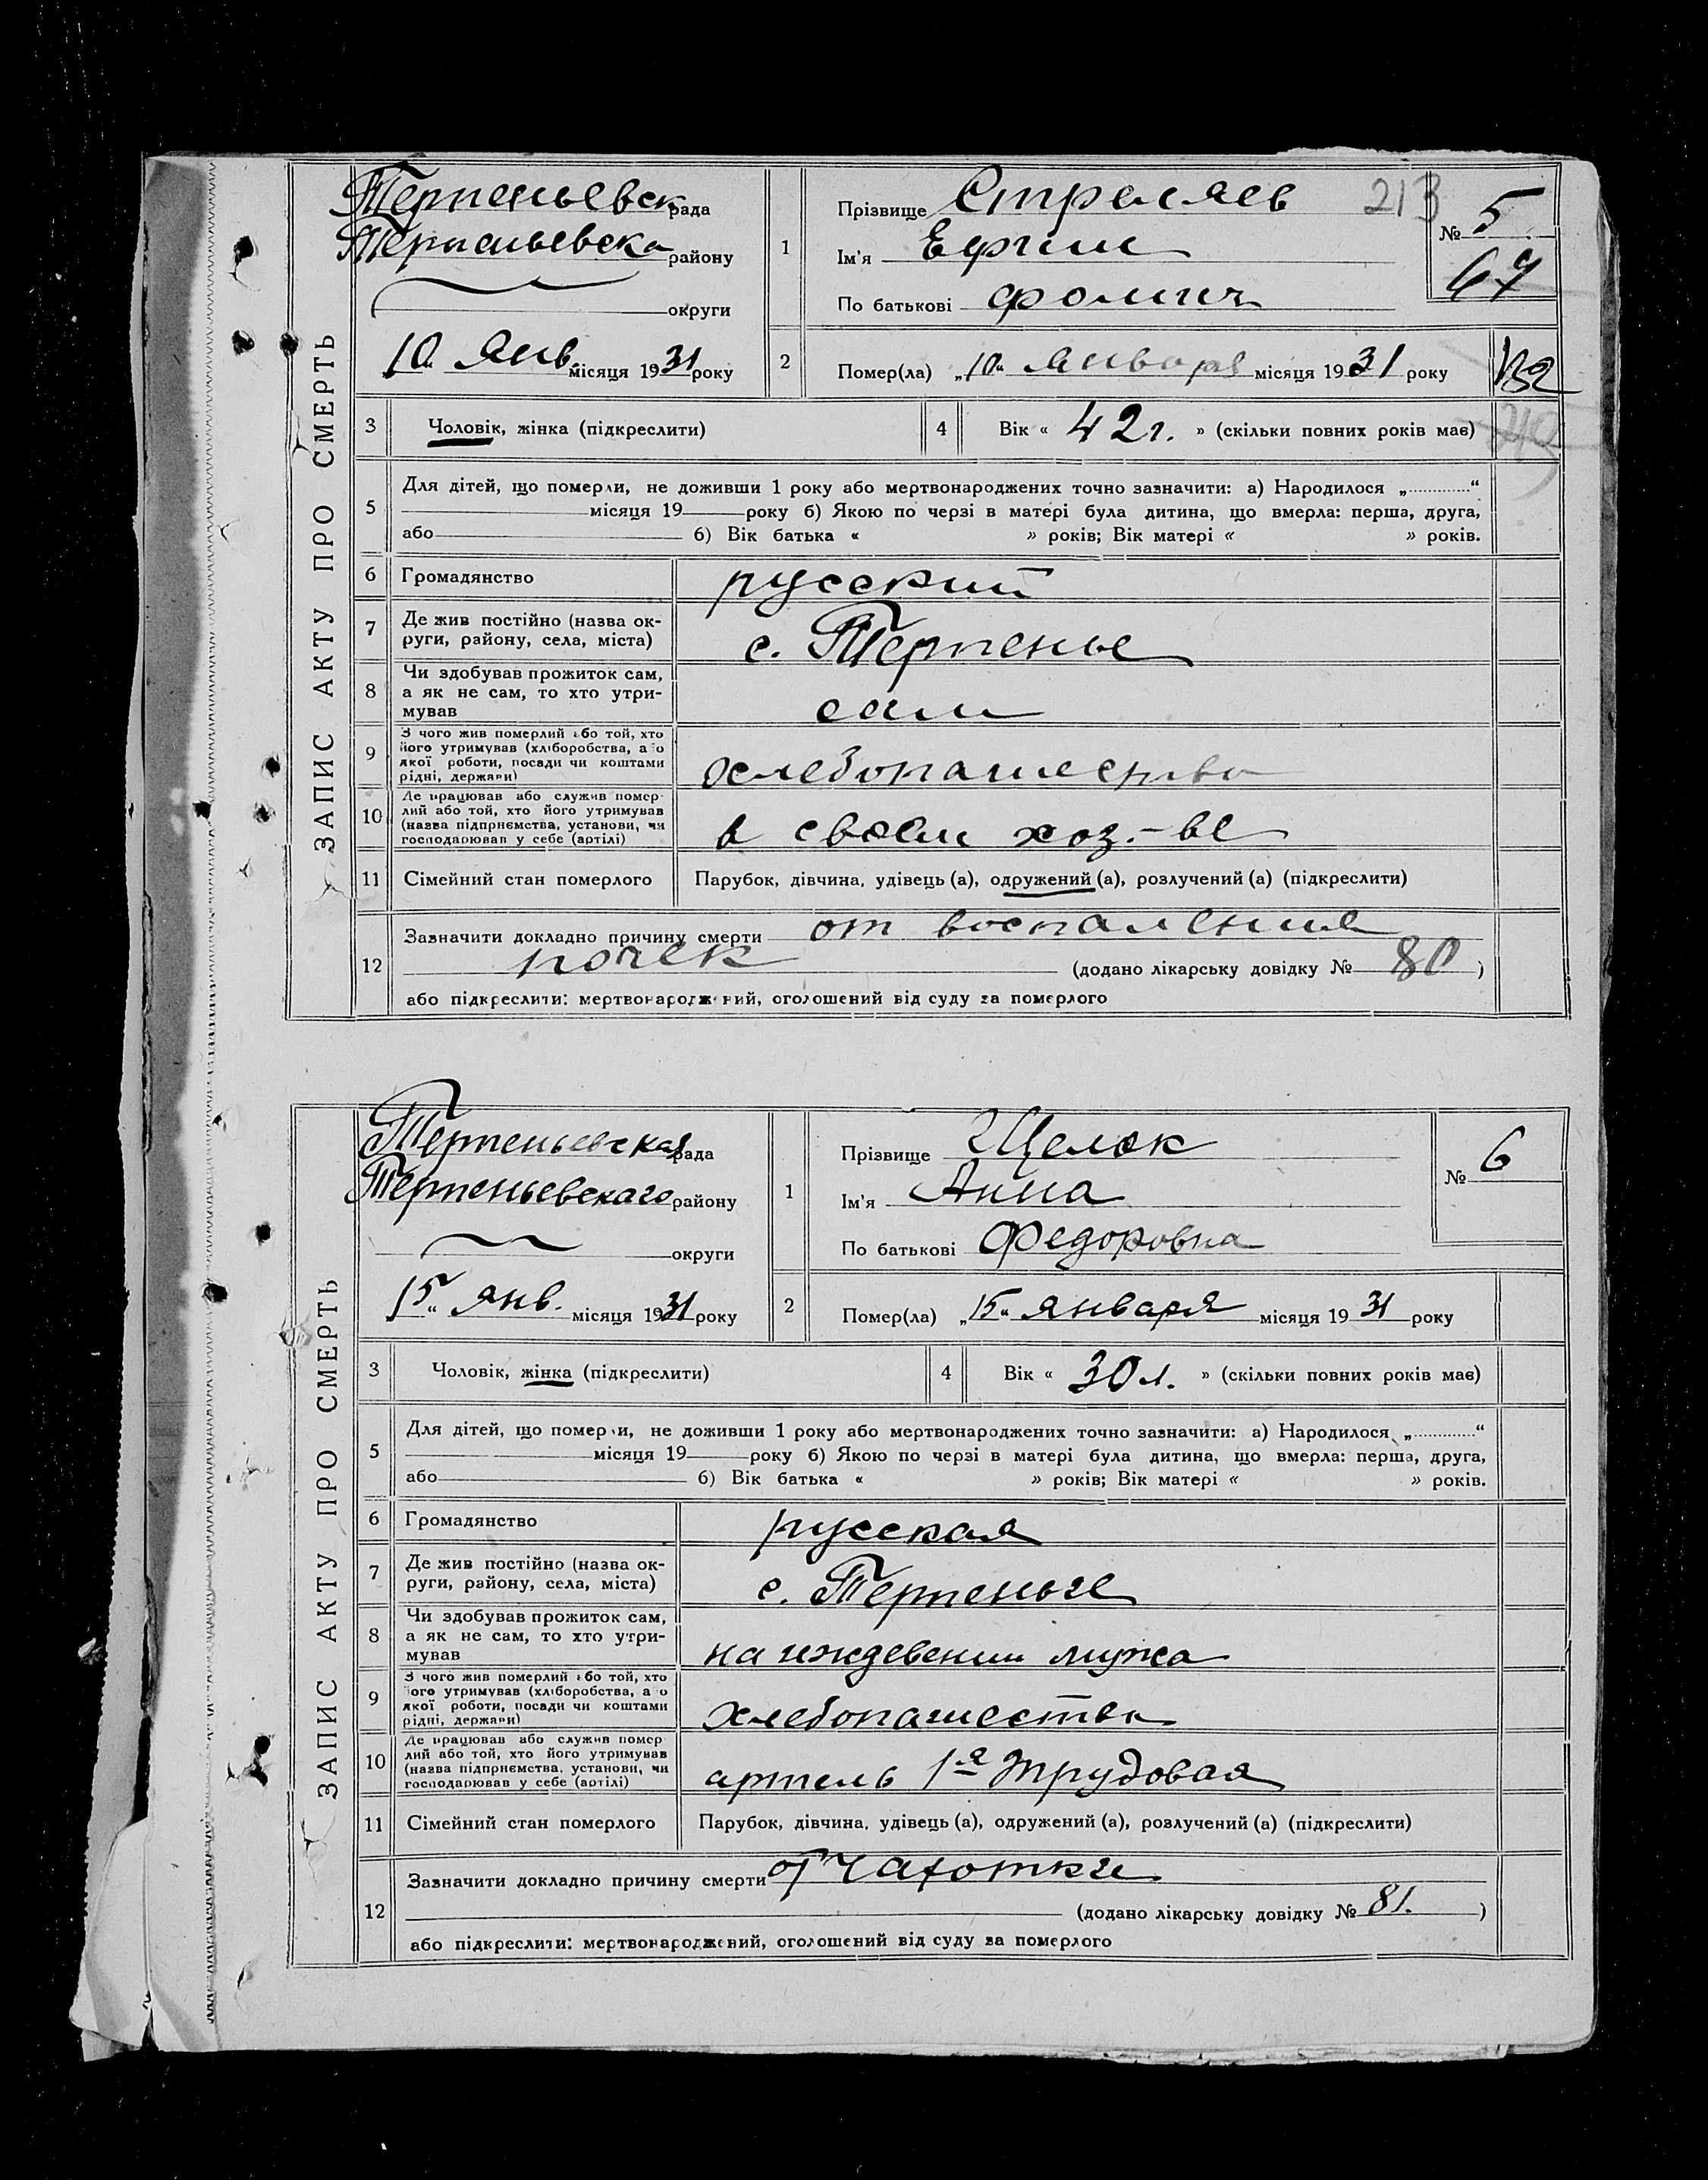 ЗАПИС АКТУ ПРО СМЕРТЬ
Терпеньевск рада
Терпеньевска району
округи
10 Янв. місяця 1931 року
1 Прізвище Стреляев 213
Ім'я Ефим
По батькові Фомич
№ 5
67
2 Помер(ла) „10" января місяця 1931 року
132
3 Чоловік, жінка (підкреслити)
4 Вік « 42 г. » (скільки повних років має)
5 Для дітей, що померли, не доживши 1 року або мертвонароджених точно зазначити: а) Народилося „ “
місяця 19 року б) Якою по черзі в матері була дитина, що вмерла: перша, друга,
або б) Вік батька « » років; Вік матері « » років.
6 Громадянство русский
7 Де жив постійно (назва ок-
руги, району, села, міста) с. Терпенье
8 Чи здобував прожиток сам,
а як не сам, то хто утри-
мував сам
9 З чого жив померлий або той, хто
його утримував (хліборобства, або
якої роботи, посади чи коштами
рідні, держави) хлебопашество
10 Де працював або служив помер-
лий або той, хто його утримував
(назва підприємства, установи, чи
господарював у себе (артілі) в своем хоз.-ве
11 Сімейний стан померлого Парубок, дівчина, удівець (а), одружений (а), розлучений (а) (підкреслити)
12 Зазначити докладно причину смерти от воспаления
почек (додано лікарську довідку № 80 )
або підкреслити: мертвонароджений, оголошений від суду за померлого
ЗАПИС АКТУ ПРО СМЕРТЬ
Терпеньевская рада
Терпеньевскаго району
округи
15" янв. місяця 1931 року
1 Прізвище Щелок
Ім'я Анна
По батькові Федоровна
№ 6
2 Помер(ла) „15" января місяця 1931 року
3 Чоловік, жінка (підкреслити)
4 Вік « 30 л. » (скільки повних років має)
5 Для дітей, що померли, не доживши 1 року або мертвонароджених точно зазначити: а) Народилося „ “
місяця 19 року б) Якою по черзі в матері була дитина, що вмерла: перша, друга,
або б) Вік батька « » років; Вік матері « » років.
6 Громадянство русская
7 Де жив постійно (назва ок-
руги, району, села, міста) с. Терпенье
8 Чи здобував прожиток сам,
а як не сам, то хто утри-
мував на иждевении мужа
9 З чого жив померлий або той, хто
його утримував (хліборобства, або
якої роботи, посади чи коштами
рідні, держави) хлебопашество
10 Де працював або служив помер-
лий або той, хто його утримував
(назва підприємства, установи, чи
господарював у себе (артілі) артель 1я Трудовая
11 Сімейний стан померлого Парубок, дівчина, удівець (а), одружений (а), розлучений (а) (підкреслити)
12 Зазначити докладно причину смерти от чахотки
(додано лікарську довідку № 81. )
або підкреслити: мертвонароджений, оголошений від суду за померлого